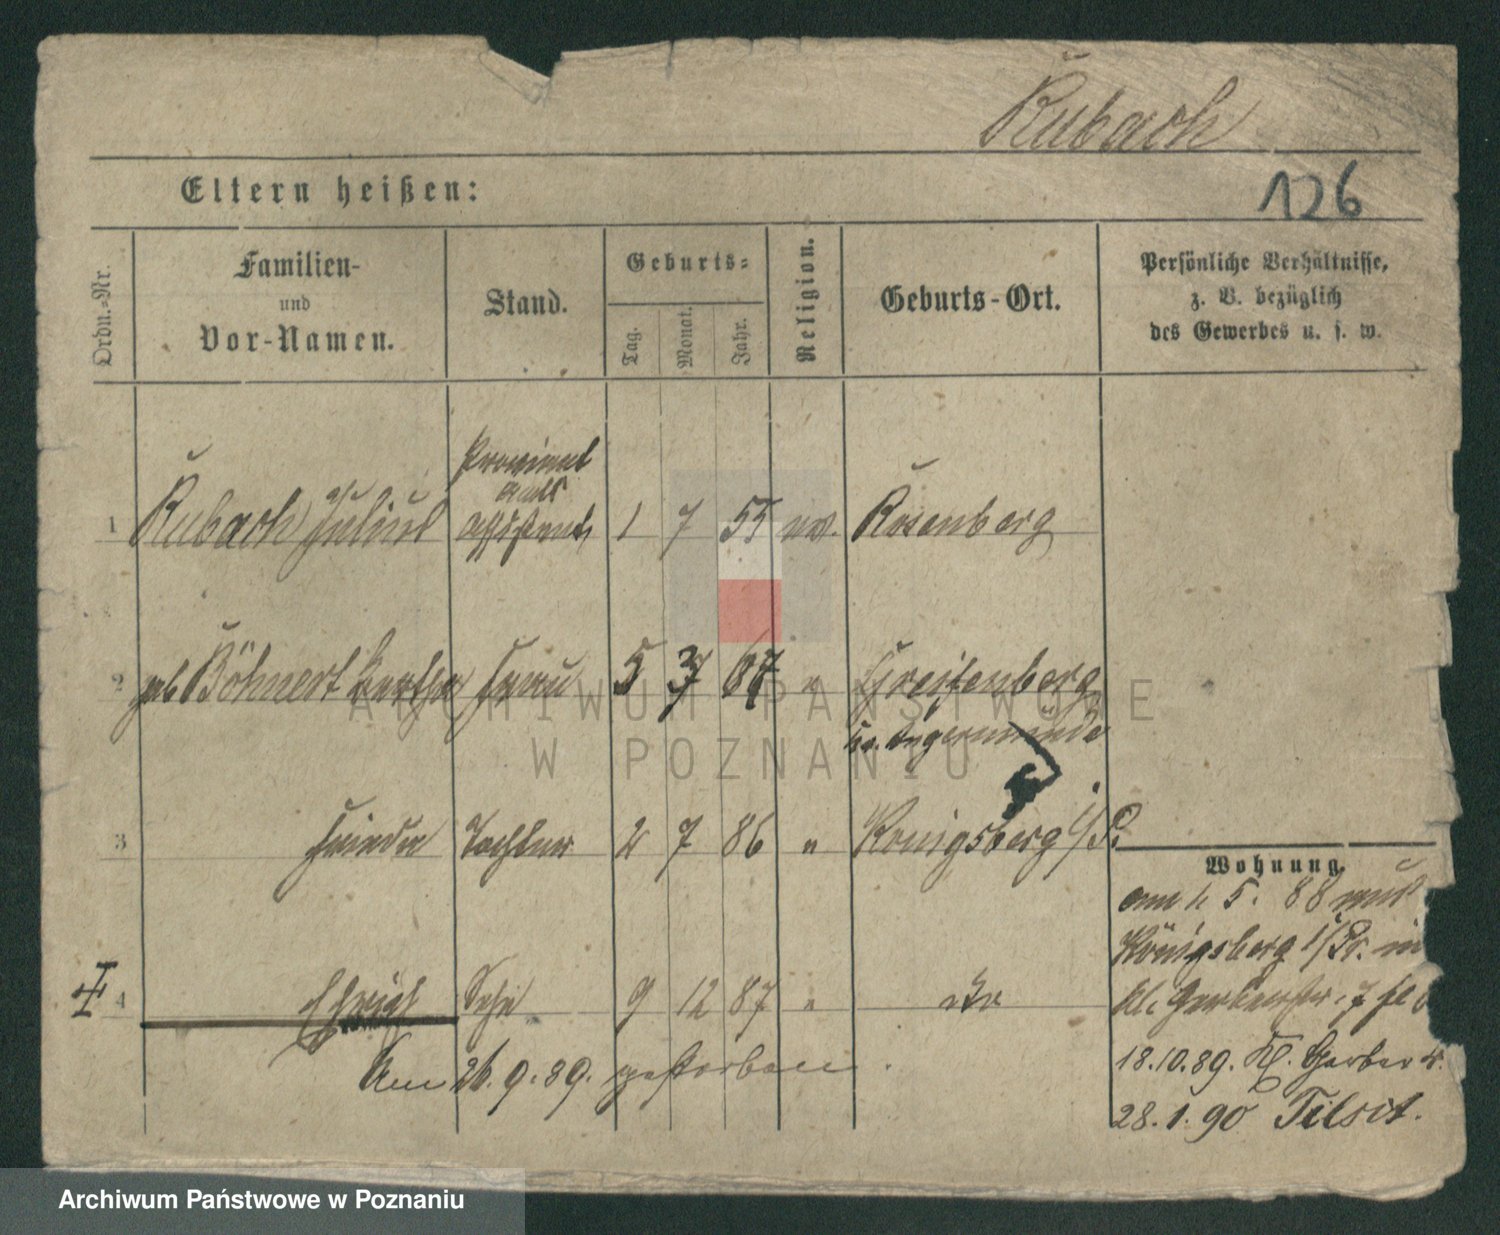 Rubach
126
Eltern heißen:
Ordn.-Nr.
Familien-
und
Vor-Namen.
Stand.
Geburts-
Tag.
Monat.
Jahr.
Religion.
Geburts-Ort.
Persönliche Verhältnisse,
z. B. bezüglich
des Gewerbes u. s. w.
Proviant
Amts
1 Rubach Julius Assistent 1 7 55 ev. Rosenberg
2 geb Böhnert Bertha Frau 5 3 67 " Greifenberg
Kr. Angermünde
3 Frieda Tochter 2 7 86 " Königsberg i/P.
4 Sohn 9 12 87 "
Am 26.9.89. gestorben.
Wohnung.
am 1. 5. 88 aus
Königsberg i/Pr. in
kl. Gerberstr. 7
18.10.89. Kl. Gerber
28.1.90 Tilsit.
ARCHIWUM PAŃSTWOWE
W POZNANIU
Archiwum Państwowe w Poznaniu